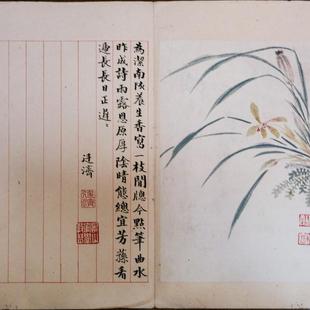 為潔南陔養生香寫一枝閒牕今點筆曲水
昨成詩雨露恩原厚陰晴態總宜芳蓀看
遶長長日正遲
廷濤